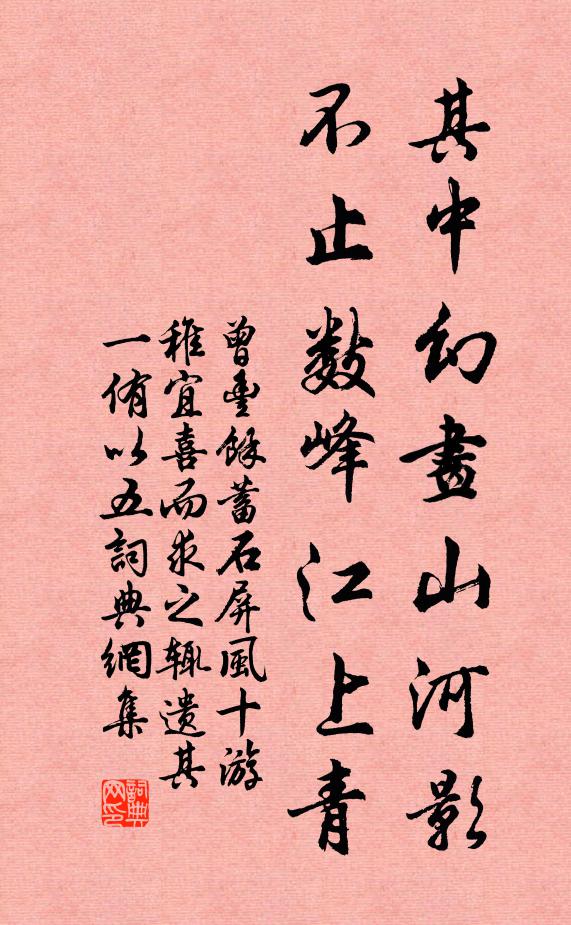 其中幻畫山河影
不止數峰江上青
曾豐餘蓄石屏風十游
稚宜喜而求之辄遗其
一侑以五詞典網集
詞典
网印